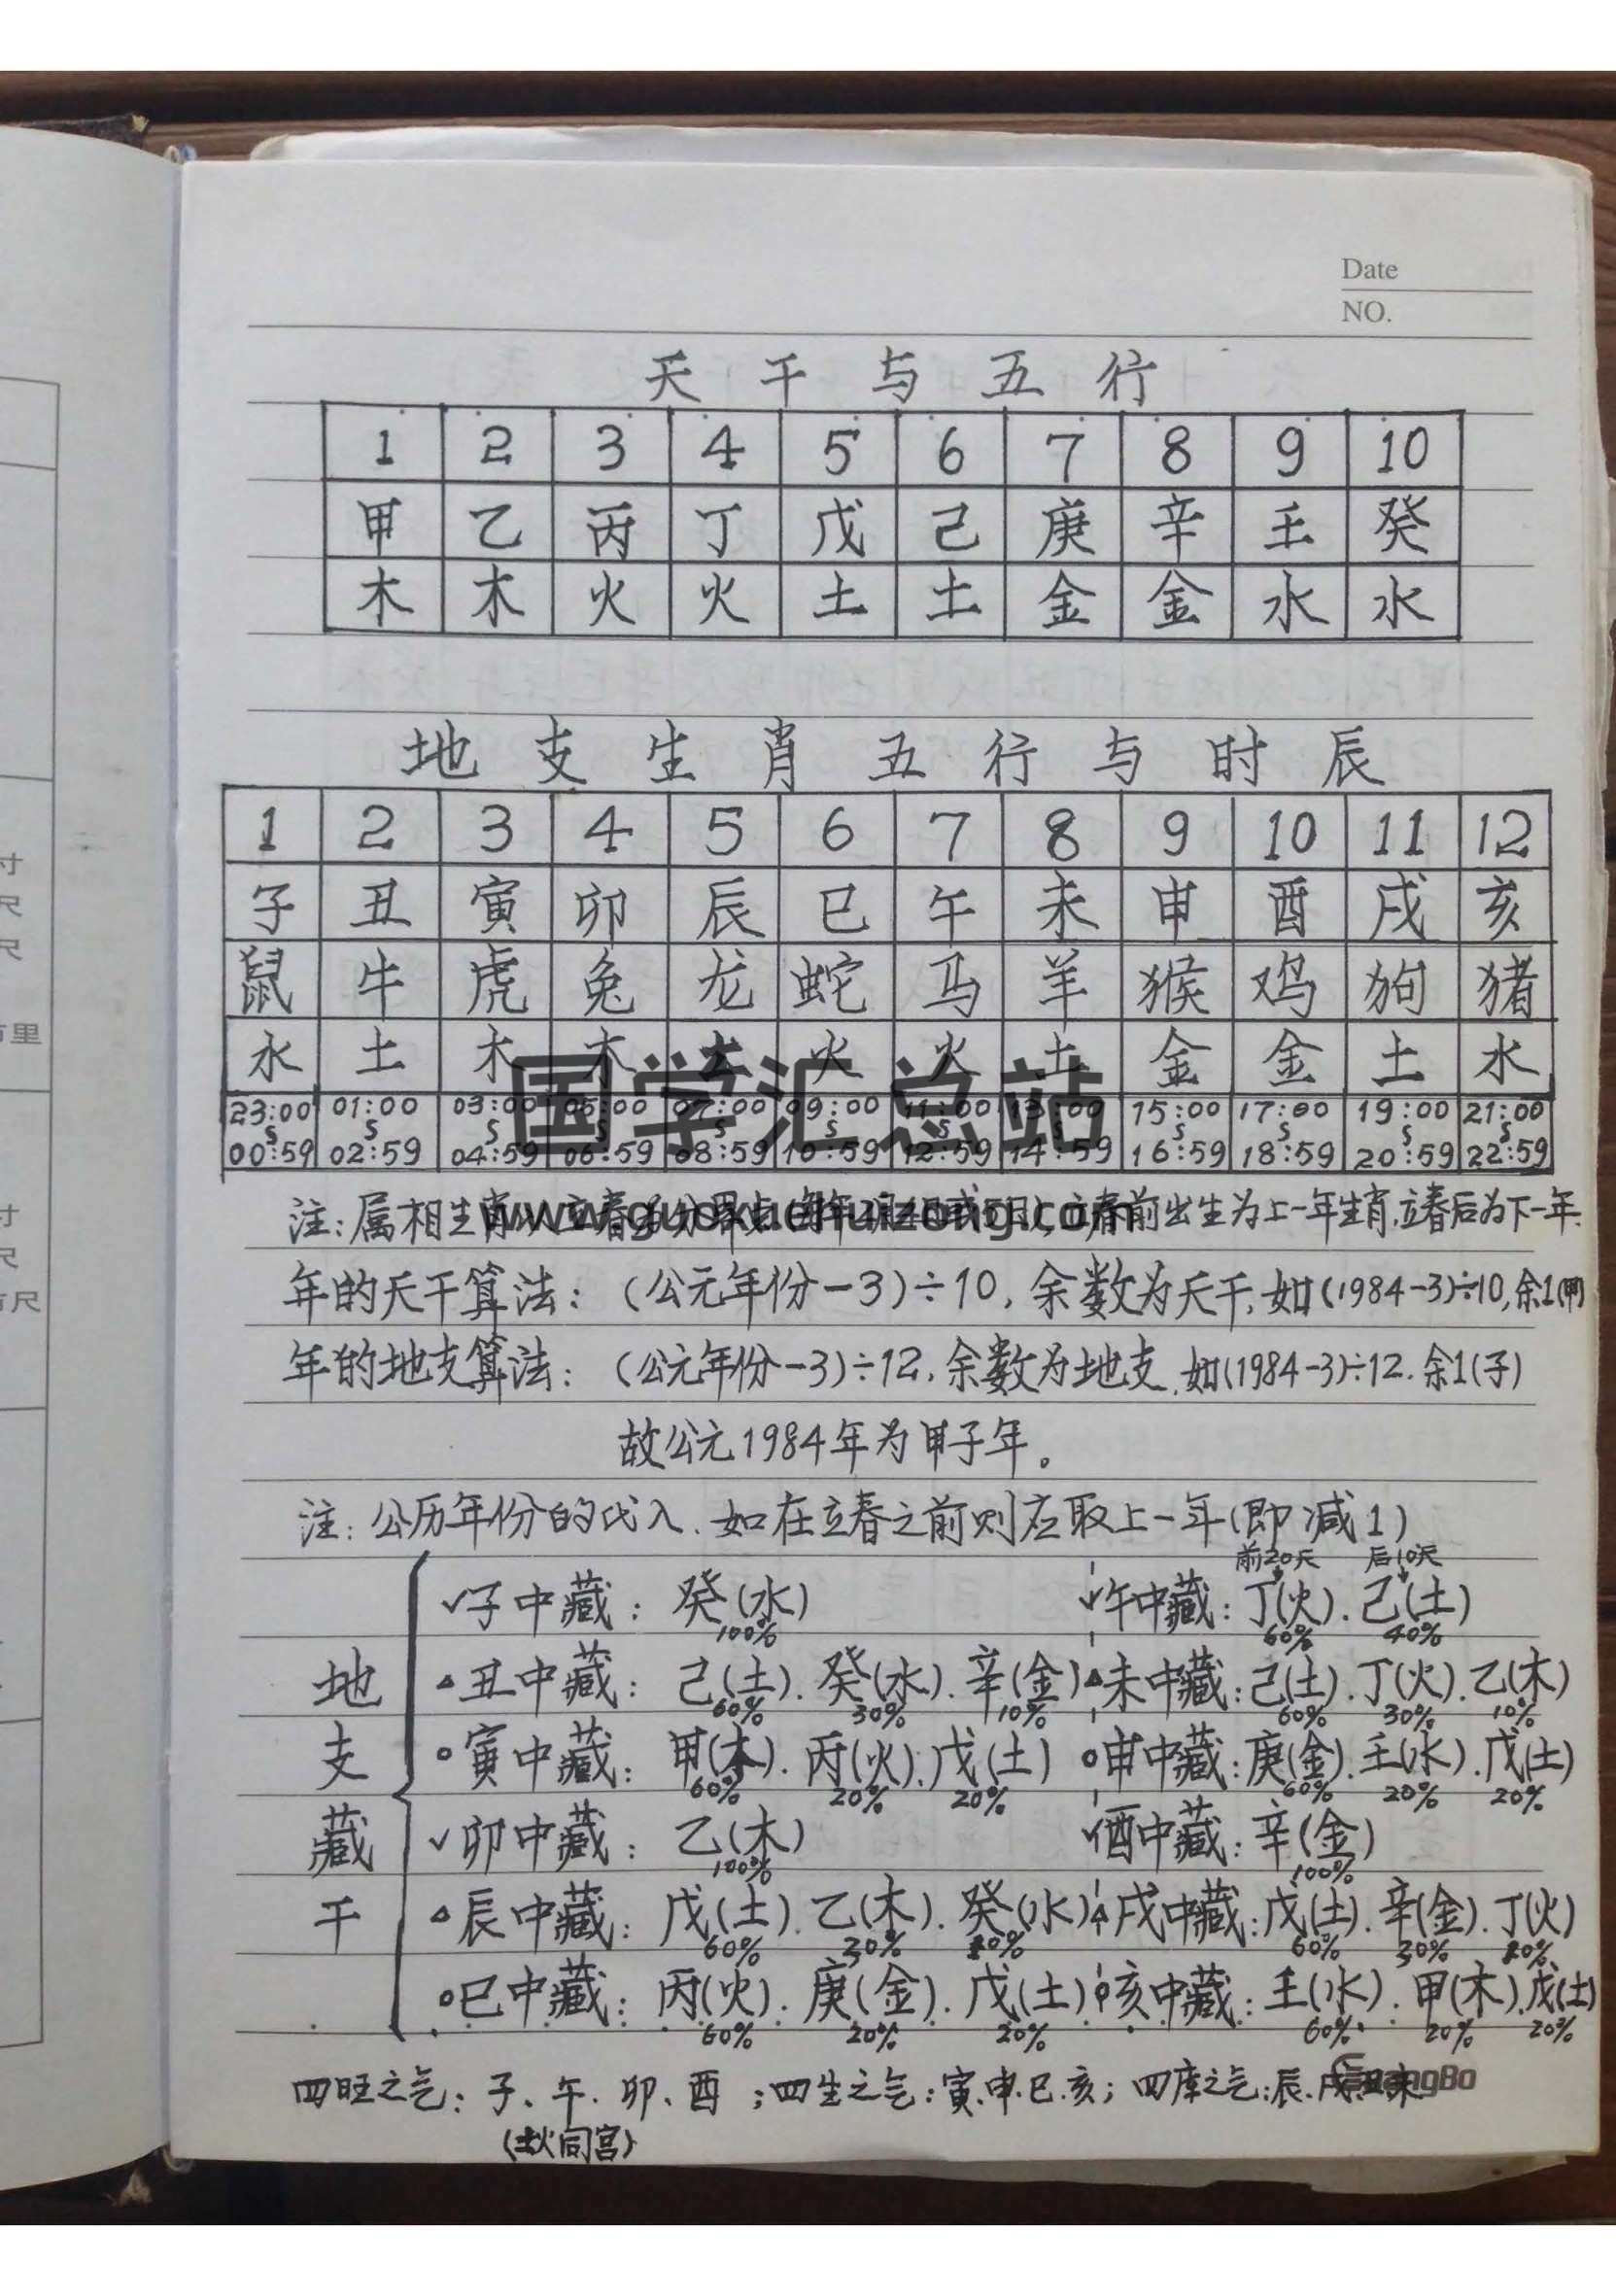 Date
NO.
天干与五行
1 2 3 4 5 6 7 8 9 10
甲 乙 丙 丁 戊 己 庚 辛 壬 癸
木 木 火 火 土 土 金 金 水 水
地支生肖五行与时辰
1 2 3 4 5 6 7 8 9 10 11 12
子 丑 寅 卯 辰 巳 午 未 申 酉 戌 亥
鼠 牛 虎 兔 龙 蛇 马 羊 猴 鸡 狗 猪
水 土 木 木 土 火 火 土 金 金 土 水
国学汇总站
23:00 01:00 03:00 05:00 07:00 09:00 11:00 13:00 15:00 17:00 19:00 21:00
00:59 02:59 04:59 06:59 08:59 10:59 12:59 14:59 16:59 18:59 20:59 22:59
注:属相生肖 立春前出生为上一年生肖,立春后为下一年.
www.guoxuehuizong.com
年的天干算法:(公元年份-3)÷10,余数为天干,如(1984-3)÷10,余1(甲)
年的地支算法:(公元年份-3)÷12,余数为地支.如(1984-3)÷12.余1(子)
故公元1984年为甲子年。
注:公历年份的代入.如在立春之前则应取上一年(即减1)
前20天 后10天
✓子中藏:癸(水) ✓午中藏:丁(火).己(土)
100% 60% 40%
地 △丑中藏:己(土).癸(水).辛(金) △未中藏:己(土).丁(火).乙(木)
60% 30% 10% 60% 30% 10%
支 ○寅中藏:甲(木).丙(火).戊(土) ○申中藏:庚(金).壬(水).戊(土)
60% 20% 20% 60% 20% 20%
藏 ✓卯中藏:乙(木) ✓酉中藏:辛(金)
100% 100%
干 △辰中藏:戊(土).乙(木).癸(水) △戌中藏:戊(土).辛(金).丁(火)
60% 30% 60% 30%
○巳中藏:丙(火).庚(金).戊(土) ○亥中藏:壬(水).甲(木).戊(土)
60% 20% 20% 60% 20% 20%
四旺之气:子、午.卯、酉;四生之气:寅.申.巳.亥;四库之气:辰.戌.丑.未
(土火同宫)
寸
尺
尺
里
寸
尺
尺